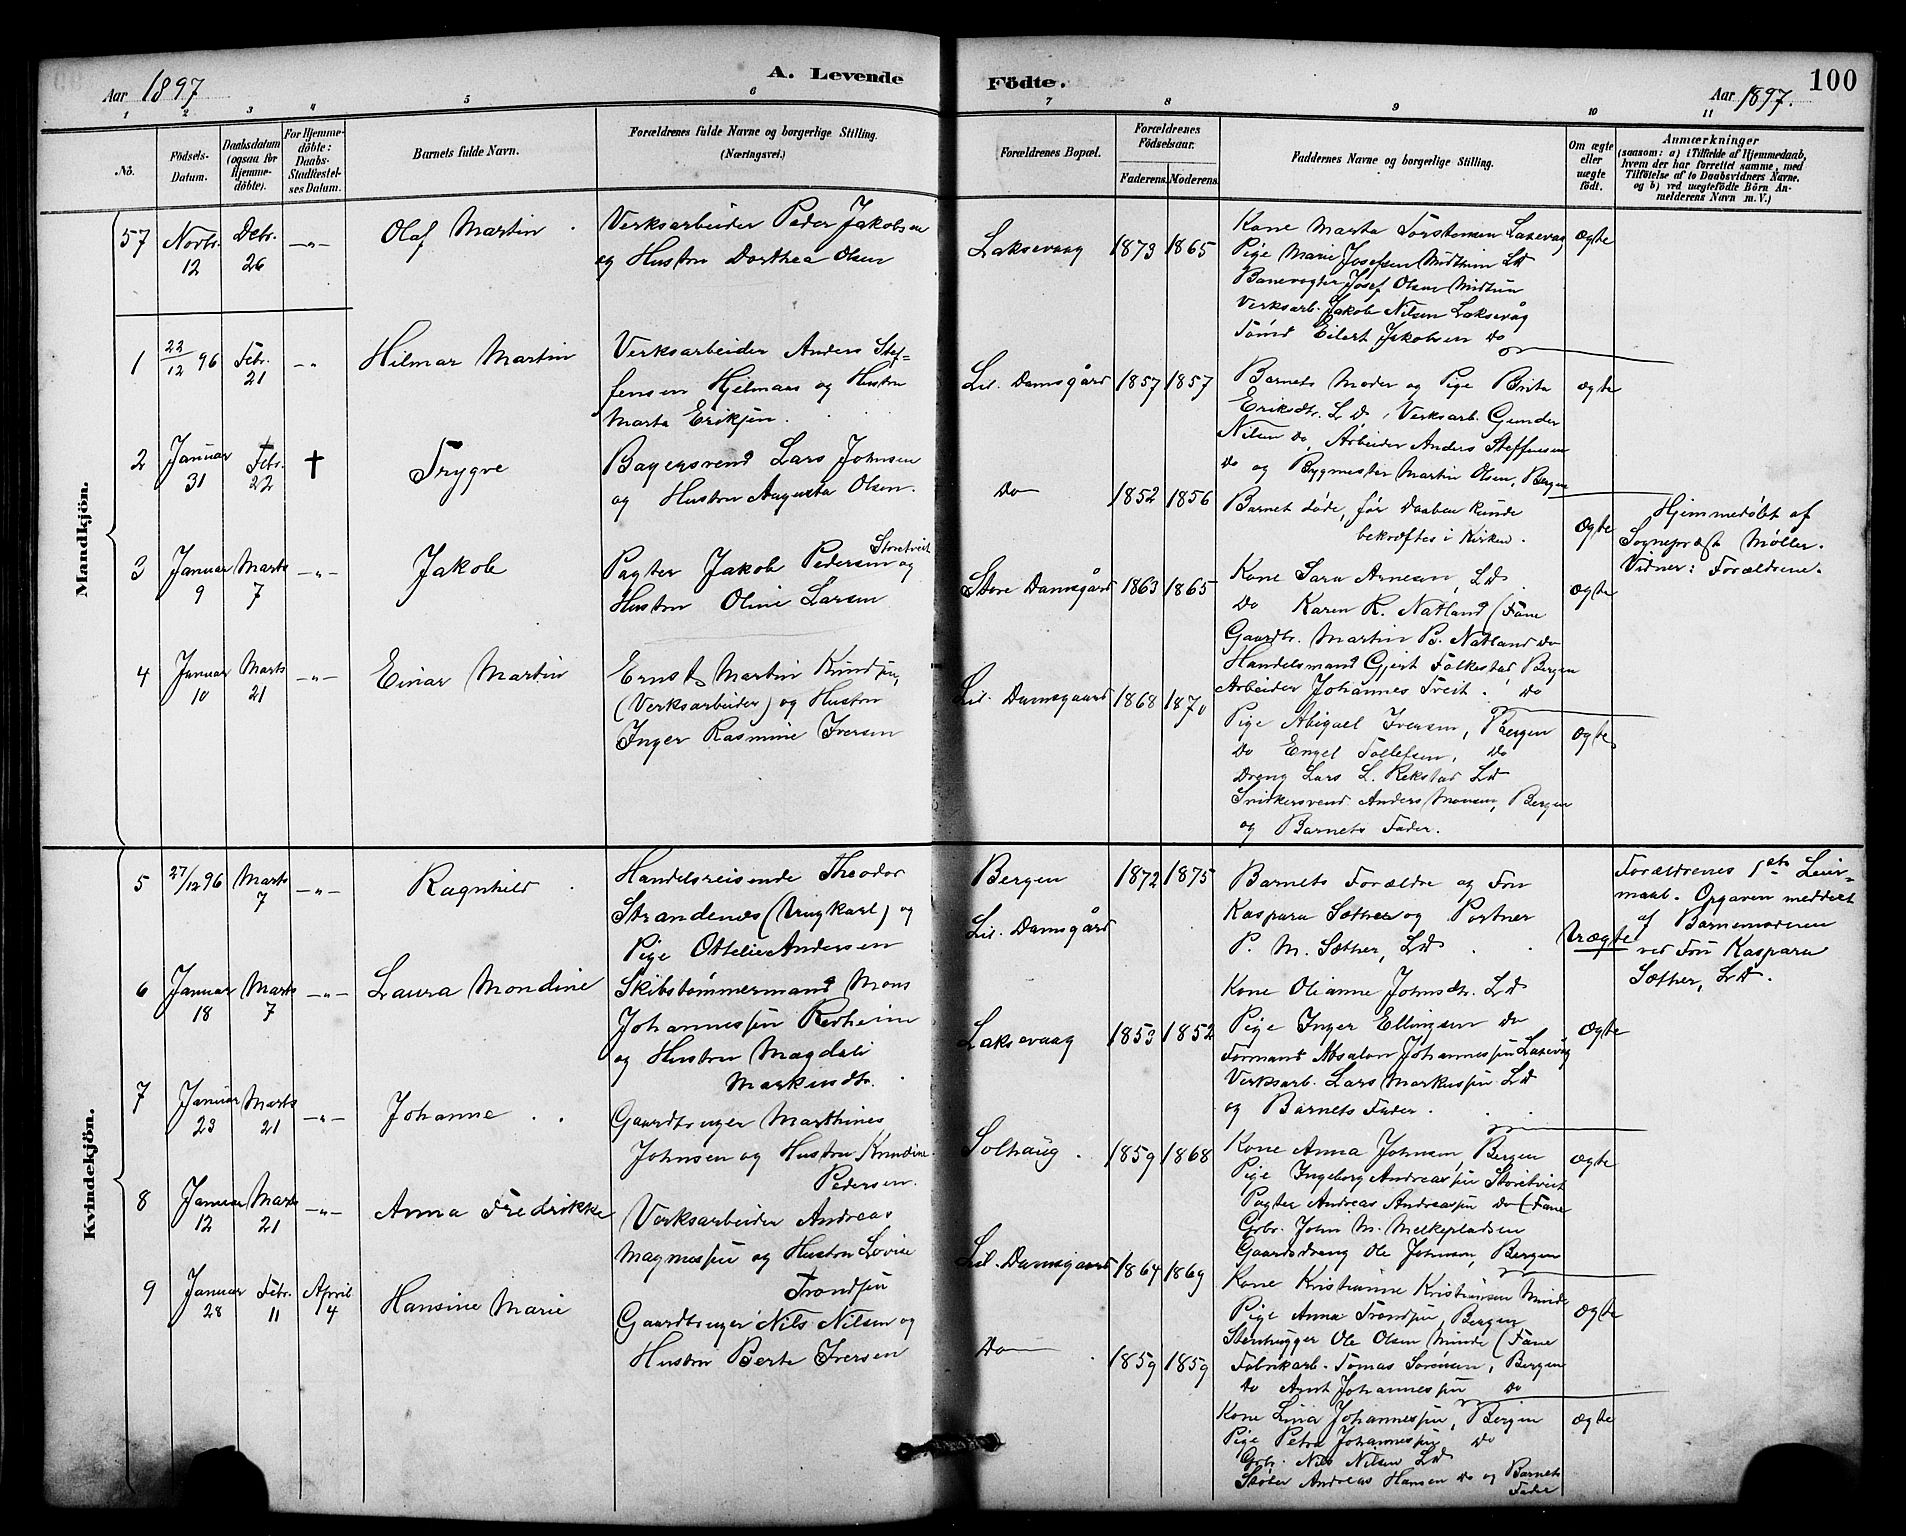 Aar 1897
A. Levende
Födte.
Aar 1897.
100
1 2 3 4 5 6 7 8 9 10 11
No.
Födsels-Datum.
Daabsdatum (ogsaa for Hjemme-döbte).
For Hjemme-döbte: Daabs-Stadfæstel-ses Datum.
Barnets fulde Navn.
Forældrenes fulde Navne og borgerlige Stilling.
(Næringsvei.)
Forældrenes Bopæl.
Forældrenes Födselsaar.
Faderens. Moderens.
Faddernes Navne og borgerlige Stilling.
Om ægte eller uægte födt.
Anmærkninger
(saasom: a) i Tilfælde af Hjemmedaab, hvem der har forrettet samme, med Tilföielse af to Daabsvidners Navne. og b) ved uægtefödte Börn An-melderens Navn m. V.)
Mandkjön.
57 Novbr. 12 Debr. 26 -"- Olaf Martin
Verksarbeider Peder Jakobsen
og Hustru Dorthea Olsen
Laksevaag 1873 1865
Kone Marta Torstensen Laxevaag
Pige Marie Josefsen Midttun LD
Banevogter Josef Olsen Midtun
Verksarb. Jakob Nilsen Laksevåg
Tømd Eilert Jakobsen Do
Ægte
1 22/12 96 Febr. 21 -"- Hilmar Martin
Verksarbeider Anders Stef-
fensen Hjelmaas og Hustru
Marta Eriksen.
Lil. Damsgård 1857 1857
Barnets Moder og Pige Brita
Eriksdtr. LD, Verksarb. Gunder
Nilsen Do, Arbeider Anders Steffensen
Do og Bygmester Martin Olsen, Bergen
Ægte
2 Januar 31 Febr. 22 † Trygve
Bagersvend Lars Johnsen
og Hustru Augusta Olsen.
Do 1852 1856
Barnet døde, før Daaben kunde
bekræftes i Kirken.
Ægte
Hjemmedøbt af
Sognepræst Møller.
Vidner: Forældrene.
3 Januar 9 Marts 7 -"- Jakob
Pagter Jakob Pedersen Storetveit og
Hustru Oline Larsen
Store Damsgård 1863 1865
Kone Sara Arnesen, LD
Do Karen K. Natland (Fane
Gaardbr. Martin B. Natland Do
Handelsmand Gjert Folkestad, Bergen
Arbeider Johannes Tveit. Do
Ægte
4 Januar 10 Marts 21 -"- Einar Martin
Ernst Martin Knudsen,
(Verksarbeider) og Hustru
Inger Rasmine Iversen
Lil. Damsgaard 1868 1870
Pige Abigael Iversen, Bergen
Do Engel Tollefsen, Do
Dreng Lars L. Rekstad LD
Snidkersvend Anders Monsen, Bergen
og Barnets Fader.
Ægte
Kvindekjön.
5 27/12 96 Marts 7 -"- Ragnhild
Handelsreisende Theodor
Strandenæs (Ungkarl) og
Pige Ottelie Andersen
Bergen
Lil. Damsgård
1872 1875
Barnets Forældre og Fru
Kaspara Sæther og Portner
P. M. Sæther, LD
Uægte
Forældrenes 1ste Leier-
maal. Opgaven meddelt
af Barnemoderen
ved Fru Kaspara
Sæther, LD.
6 Januar 18 Marts 7 -"- Laura Mondine
Skibstømmermand Mons
Johannessen Rødheim
og Hustru Magdali
Markusdtr.
Laksevaag 1853 1852
Kone Olianne Johnsdtr. LD
Pige Inger Ellingsen Do
Formand Absalon Johannessen Laxevåg
Verksarb. Lars Markussen LD
og Barnets Fader.
Ægte
7 Januar 23 Marts 21 -"- Johanna
Gaardbruger Marthines
Johnsen og Hustru Knudine
Pedersen.
Solhaug 1859 1868
Kone Anna Johnsen, Bergen
Pige Ingeborg Andreassen Storetveit
Pagter Andreas Andreassen Do (Fane
Gbr. John M. Melkepladsen
Gaardsdreng Ole Johnsen, Bergen
Ægte
8 Januar 12 Marts 21 -"- Anna Fredrikke
Verksarbeider Andreas
Magnussen og Hustru Lovise
Trondsen
Lil. Damsgaard 1864 1869
Kone Kristianne Kristiansen Minde
Pige Anna Trondsen, Bergen
Stenhugger Ole Olsen Minde (Fane
Fabrikarb. Tomas Sørensen, Bergen
Do Arnt Johannessen Do
Ægte
9 Januar 28 Febr. 11 April 4 Hansine Marie
Gaardbruger Nils Nilsen og
Hustru Berte Iversen
Do 1859 1859
Kone Lina Johannessen, Bergen
Pige Petra Johannessen Do
Gbr. Nils Nilsen LD
Støber Andreas Hansen Do og Barnets
Fader
Ægte